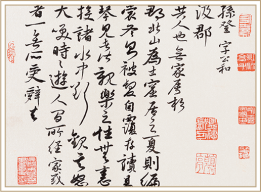 孫登字公和
汲郡
共人也無家屬於
郡北山為土窟居之夏則編
裳冬則被髮自覆好讀易
琴見者皆親樂之性無恚
投諸水中欲觀其怒
大笑時時遊人間所經家或
者一無所受辭去